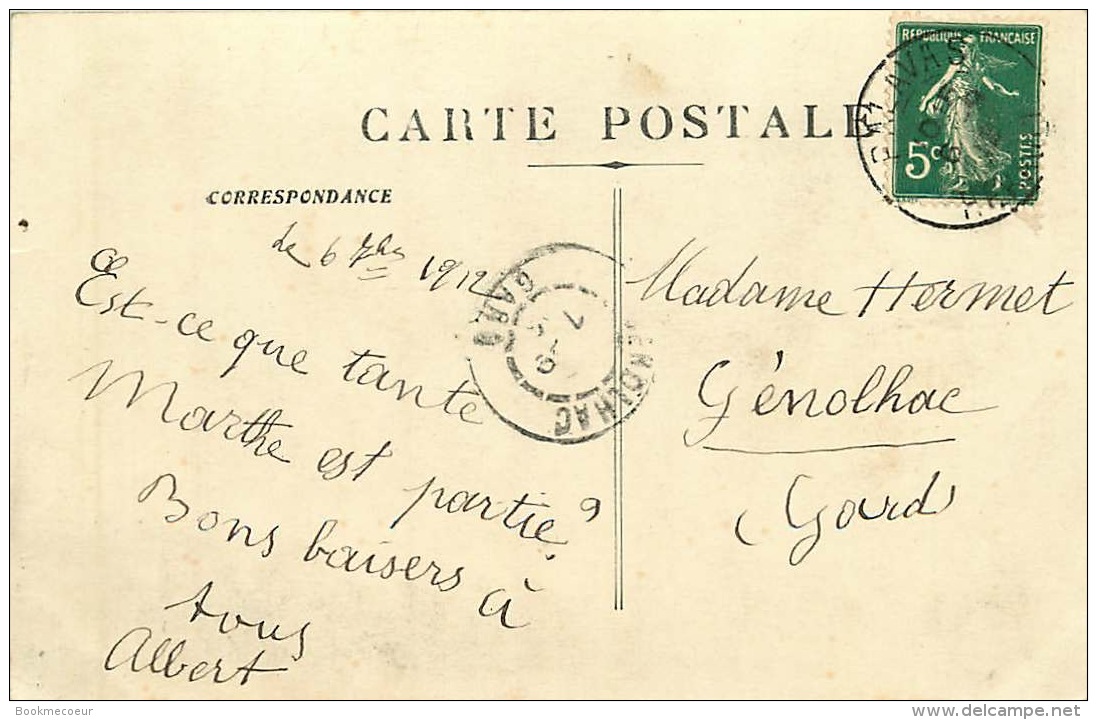 CARTE POSTALE
RÉPUBLIQUE FRANÇAISE
5c
POSTES
PALAVAS
CORRESPONDANCE
Le 6 7bre 1912
Est-ce que tante
Marthe est partie?
Bons baisers à
tous
Albert
GENOLHAC
GARD
7 - 9
Madame Hermet
Génolhac
(Gard)
Bookmecoeur
www.delcampe.net